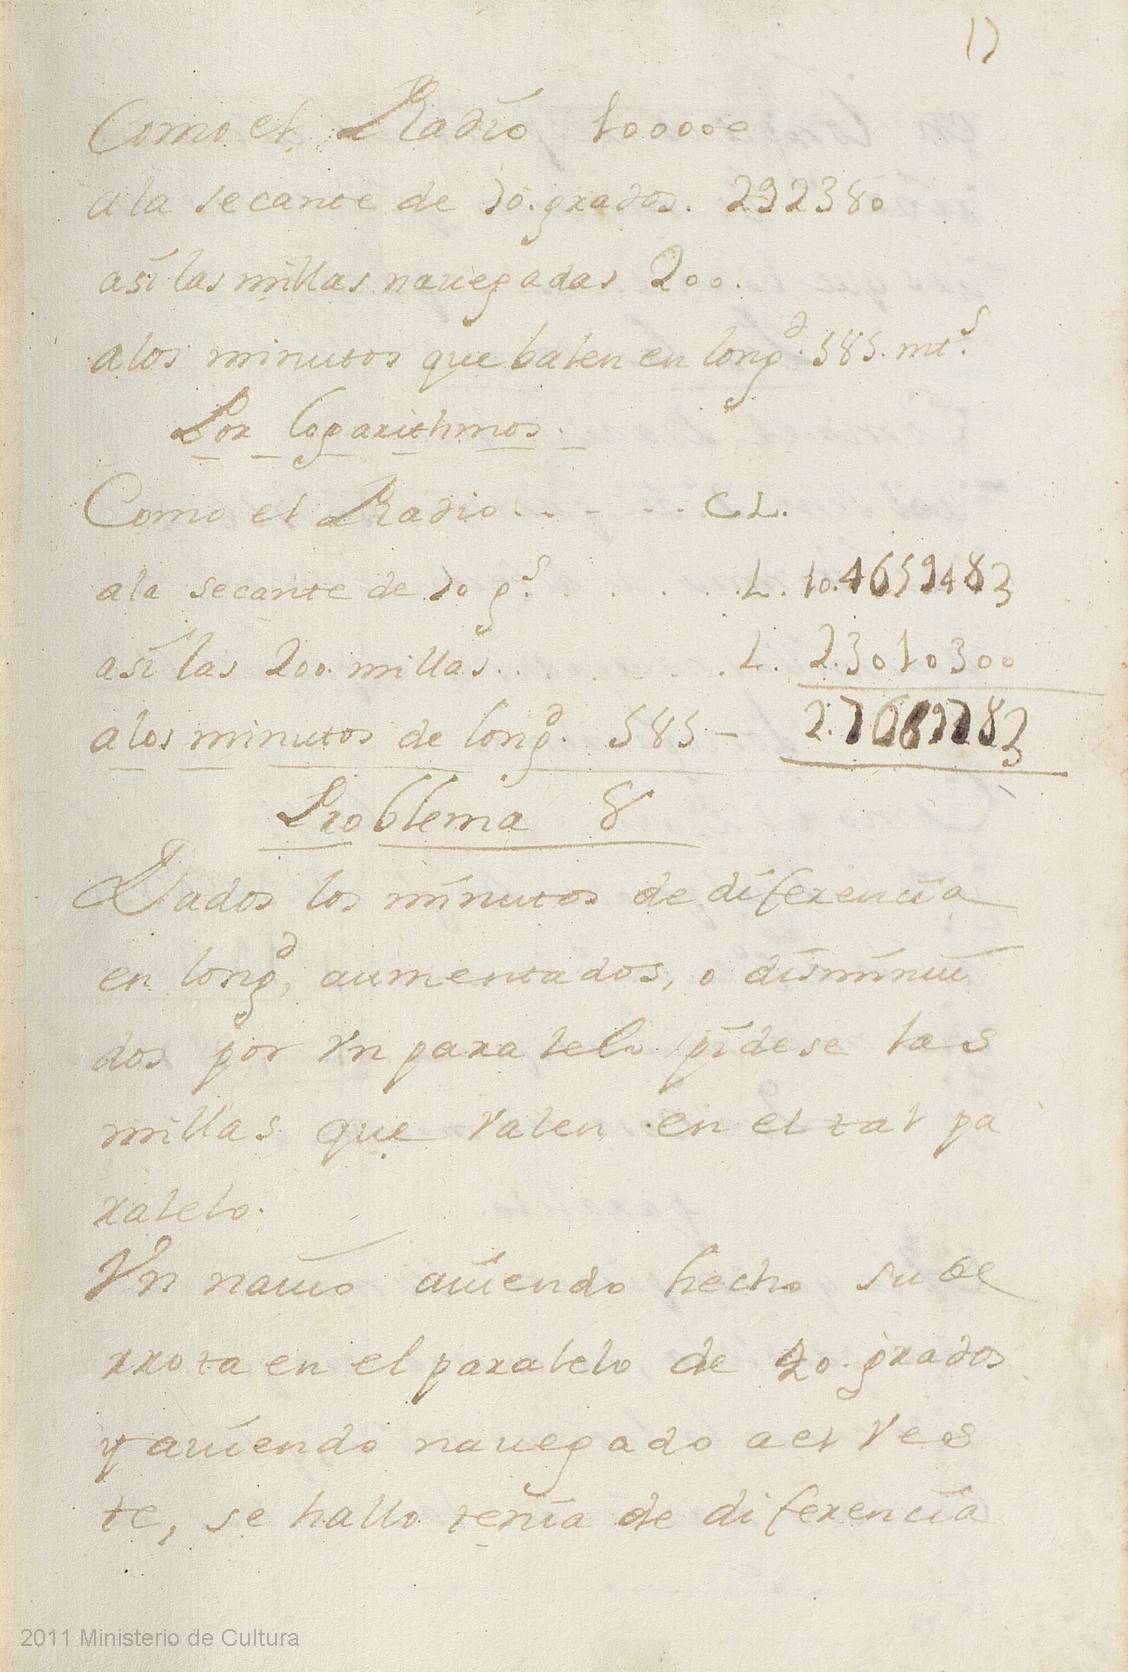 17
Como el Radio 100000
a la secante de 70. grados. 292380
asi las millas nauegadas 200.
a los minutos que balen en long.d 585. mt.s
Por logarithmos.
Como el Radio . . - - . . CL.
a la secante de 70 g.s . . . . . . L. 10.4659483
asi las 200. millas. . . . . . . L. 2.3010300
a los minutos de long.d 585 - 2.7669783
Problema 8
Dados los minutos de diferencia
en long.d, aumentados, o disminui
dos por Vn paralelo pidese las
millas que Valen en el tal pa
ralelo.
Vn nauio auiendo hecho su de
rrota en el paralelo de 40. grados
y auiendo nauegado a el Ves
te, se hallo tenia de diferencia
2011 Ministerio de Cultura